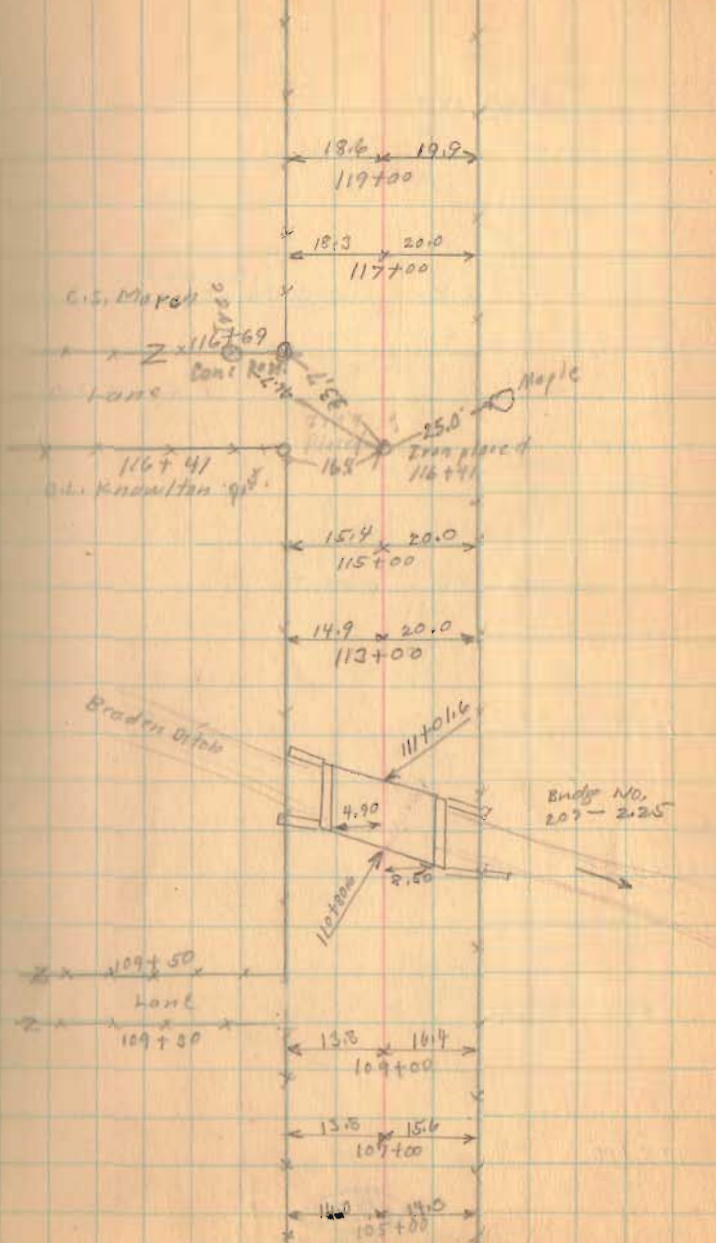 18.6 19.9
119+00
18.3 20.0
117+00
116+69
Lane
Maple
25.0'
Iron placed
116+41
116+41
O.L. Knowlton
15.4 20.0
115+00
14.9 20.0
113+00
Braden Ditch
111+01.6
4.90
Bridge No.
209-2.25
8.50
109+50
Lane
109+30
13.8 16.4
109+00
13.8 15.6
107+00
14.0 14.0
105+00